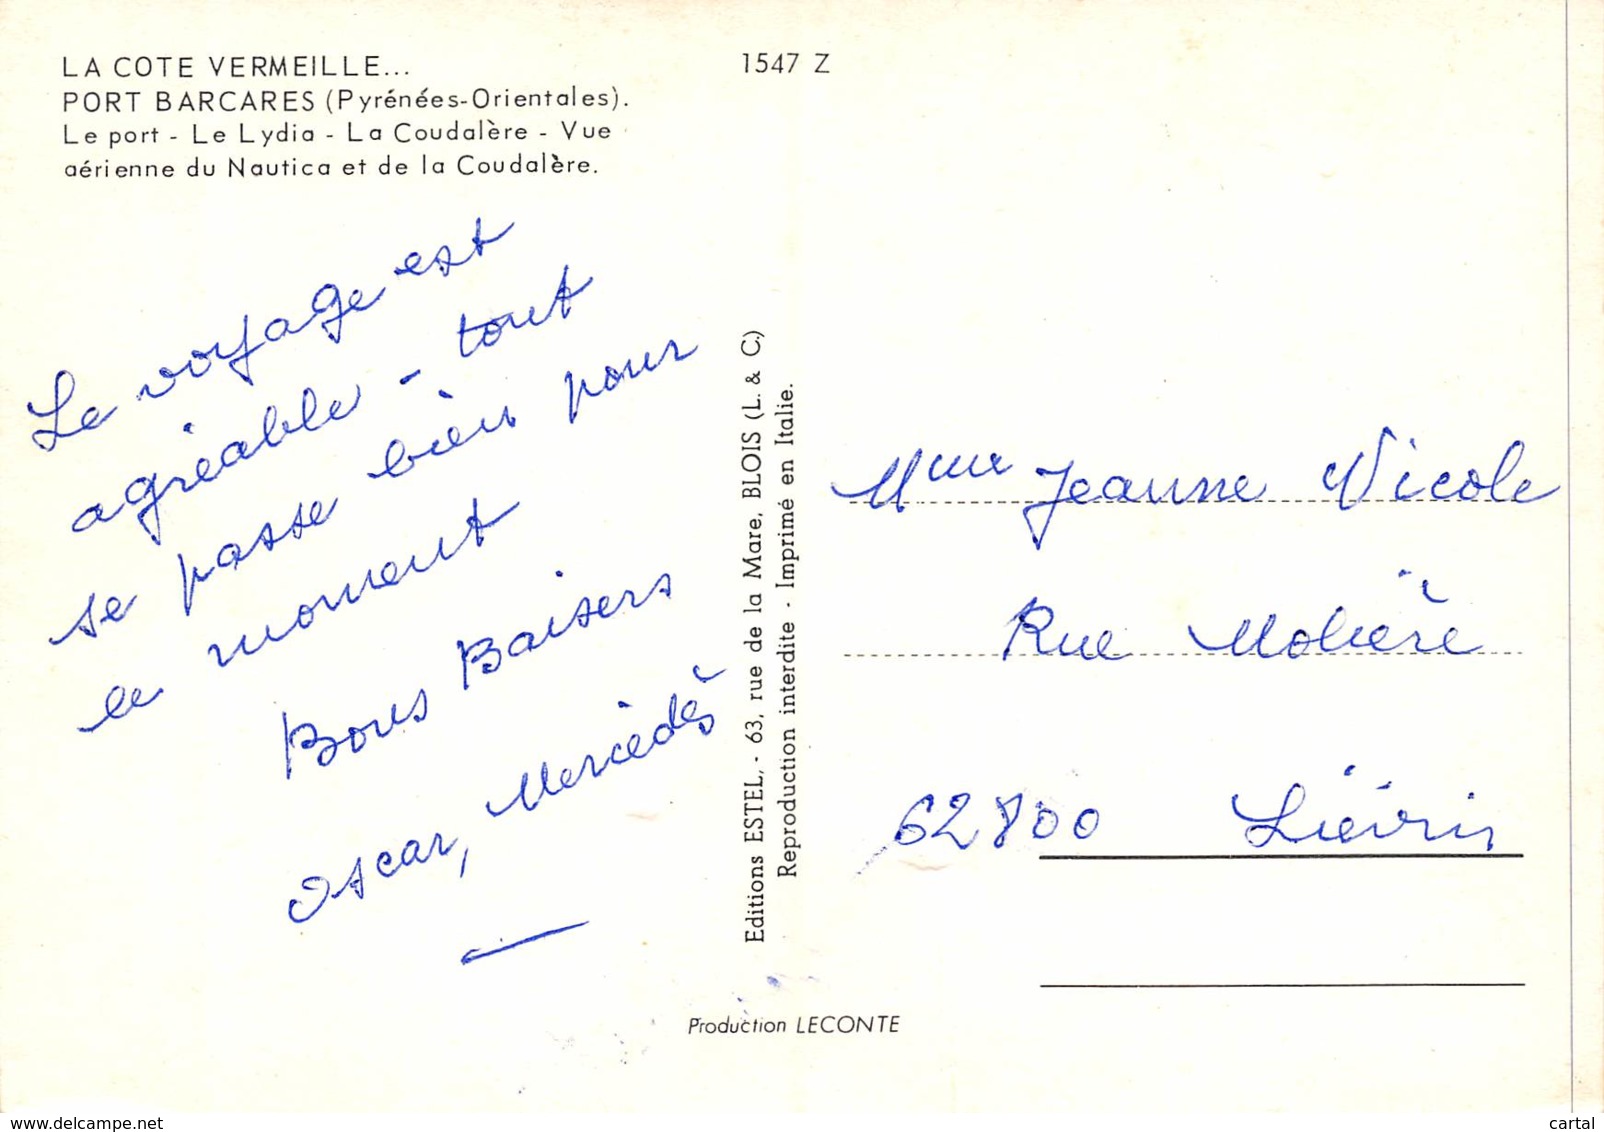 LA COTE VERMEILLE...
PORT BARCARES (Pyrénées-Orientales).
Le port - Le Lydia - La Coudalère - Vue
aérienne du Nautica et de la Coudalère.
1547 Z
Le voyage est
agréable - tout
se passe bien pour
le moment
Bons Baisers
Oscar, Mercédès
Editions ESTEL, - 63, rue de la Mare, BLOIS (L. & C.)
Reproduction interdite - Imprimé en Italie.
Mme Jeanne Nicole
Rue Molière
62800 Liévin
Production LECONTE
www.delcampe.net
cartal